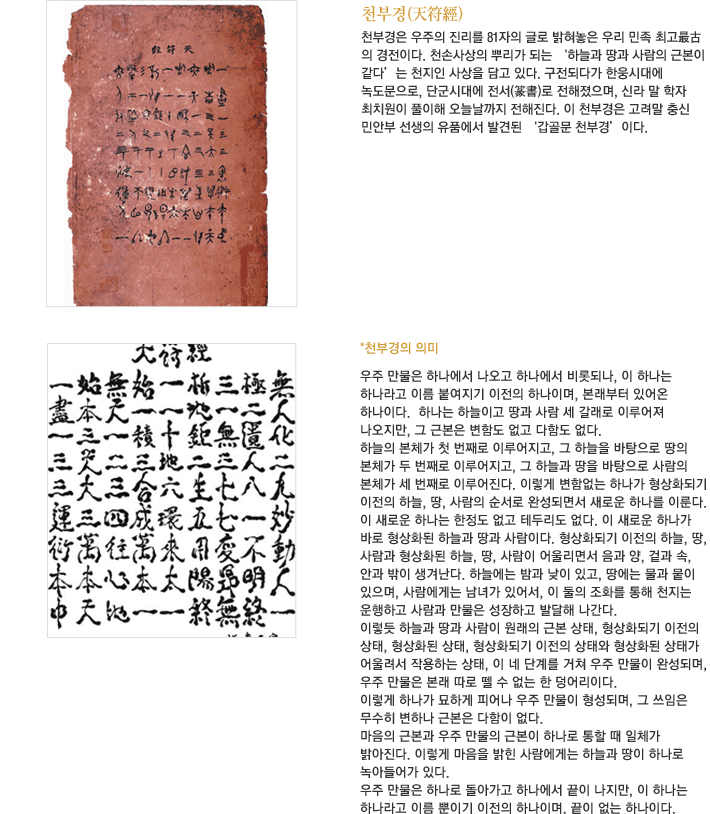 천부경(天符經)
천부경은 우주의 진리를 81자의 글로 밝혀놓은 우리 민족 최고最古
의 경전이다. 천손사상의 뿌리가 되는 ‘하늘과 땅과 사람의 근본이
같다’는 천지인 사상을 담고 있다. 구전되다가 한웅시대에
녹도문으로, 단군시대에 전서(篆書)로 전해졌으며, 신라 말 학자
최치원이 풀이해 오늘날까지 전해진다. 이 천부경은 고려말 충신
민안부 선생의 유품에서 발견된 ‘갑골문 천부경’이다.
天符經
天符經
一始無始一析三極無
盡本天一一地一二人
一三一積十鉅無匱化
三天二三地二三人二
三大三合六生七八九
運三四成環五七一妙
衍萬往萬來用變不動
本本心本太陽昻明人
中天地一一終無終一
*천부경의 의미
우주 만물은 하나에서 나오고 하나에서 비롯되나, 이 하나는
하나라고 이름 붙여지기 이전의 하나이며, 본래부터 있어온
하나이다. 하나는 하늘이고 땅과 사람 세 갈래로 이루어져
나오지만, 그 근본은 변함도 없고 다함도 없다.
하늘의 본체가 첫 번째로 이루어지고, 그 하늘을 바탕으로 땅의
본체가 두 번째로 이루어지고, 그 하늘과 땅을 바탕으로 사람의
본체가 세 번째로 이루어진다. 이렇게 변함없는 하나가 형상화되기
이전의 하늘, 땅, 사람의 순서로 완성되면서 새로운 하나를 이룬다.
이 새로운 하나는 한정도 없고 테두리도 없다. 이 새로운 하나가
바로 형상화된 하늘과 땅과 사람이다. 형상화되기 이전의 하늘, 땅,
사람과 형상화된 하늘, 땅, 사람이 어울리면서 음과 양, 겉과 속,
안과 밖이 생겨난다. 하늘에는 밤과 낮이 있고, 땅에는 물과 뭍이
있으며, 사람에게는 남녀가 있어서, 이 둘의 조화를 통해 천지는
운행하고 사람과 만물은 성장하고 발달해 나간다.
이렇듯 하늘과 땅과 사람이 원래의 근본 상태, 형상화되기 이전의
상태, 형상화된 상태, 형상화되기 이전의 상태와 형상화된 상태가
어울려서 작용하는 상태, 이 네 단계를 거쳐 우주 만물이 완성되며,
우주 만물은 본래 따로 뗄 수 없는 한 덩어리이다.
이렇게 하나가 묘하게 피어나 우주 만물이 형성되며, 그 쓰임은
무수히 변하나 근본은 다함이 없다.
마음의 근본과 우주 만물의 근본이 하나로 통할 때 일체가
밝아진다. 이렇게 마음을 밝힌 사람에게는 하늘과 땅이 하나로
녹아들어가 있다.
우주 만물은 하나로 돌아가고 하나에서 끝이 나지만, 이 하나는
하나라고 이름 뿐이기 이전의 하나이며, 끝이 없는 하나이다.